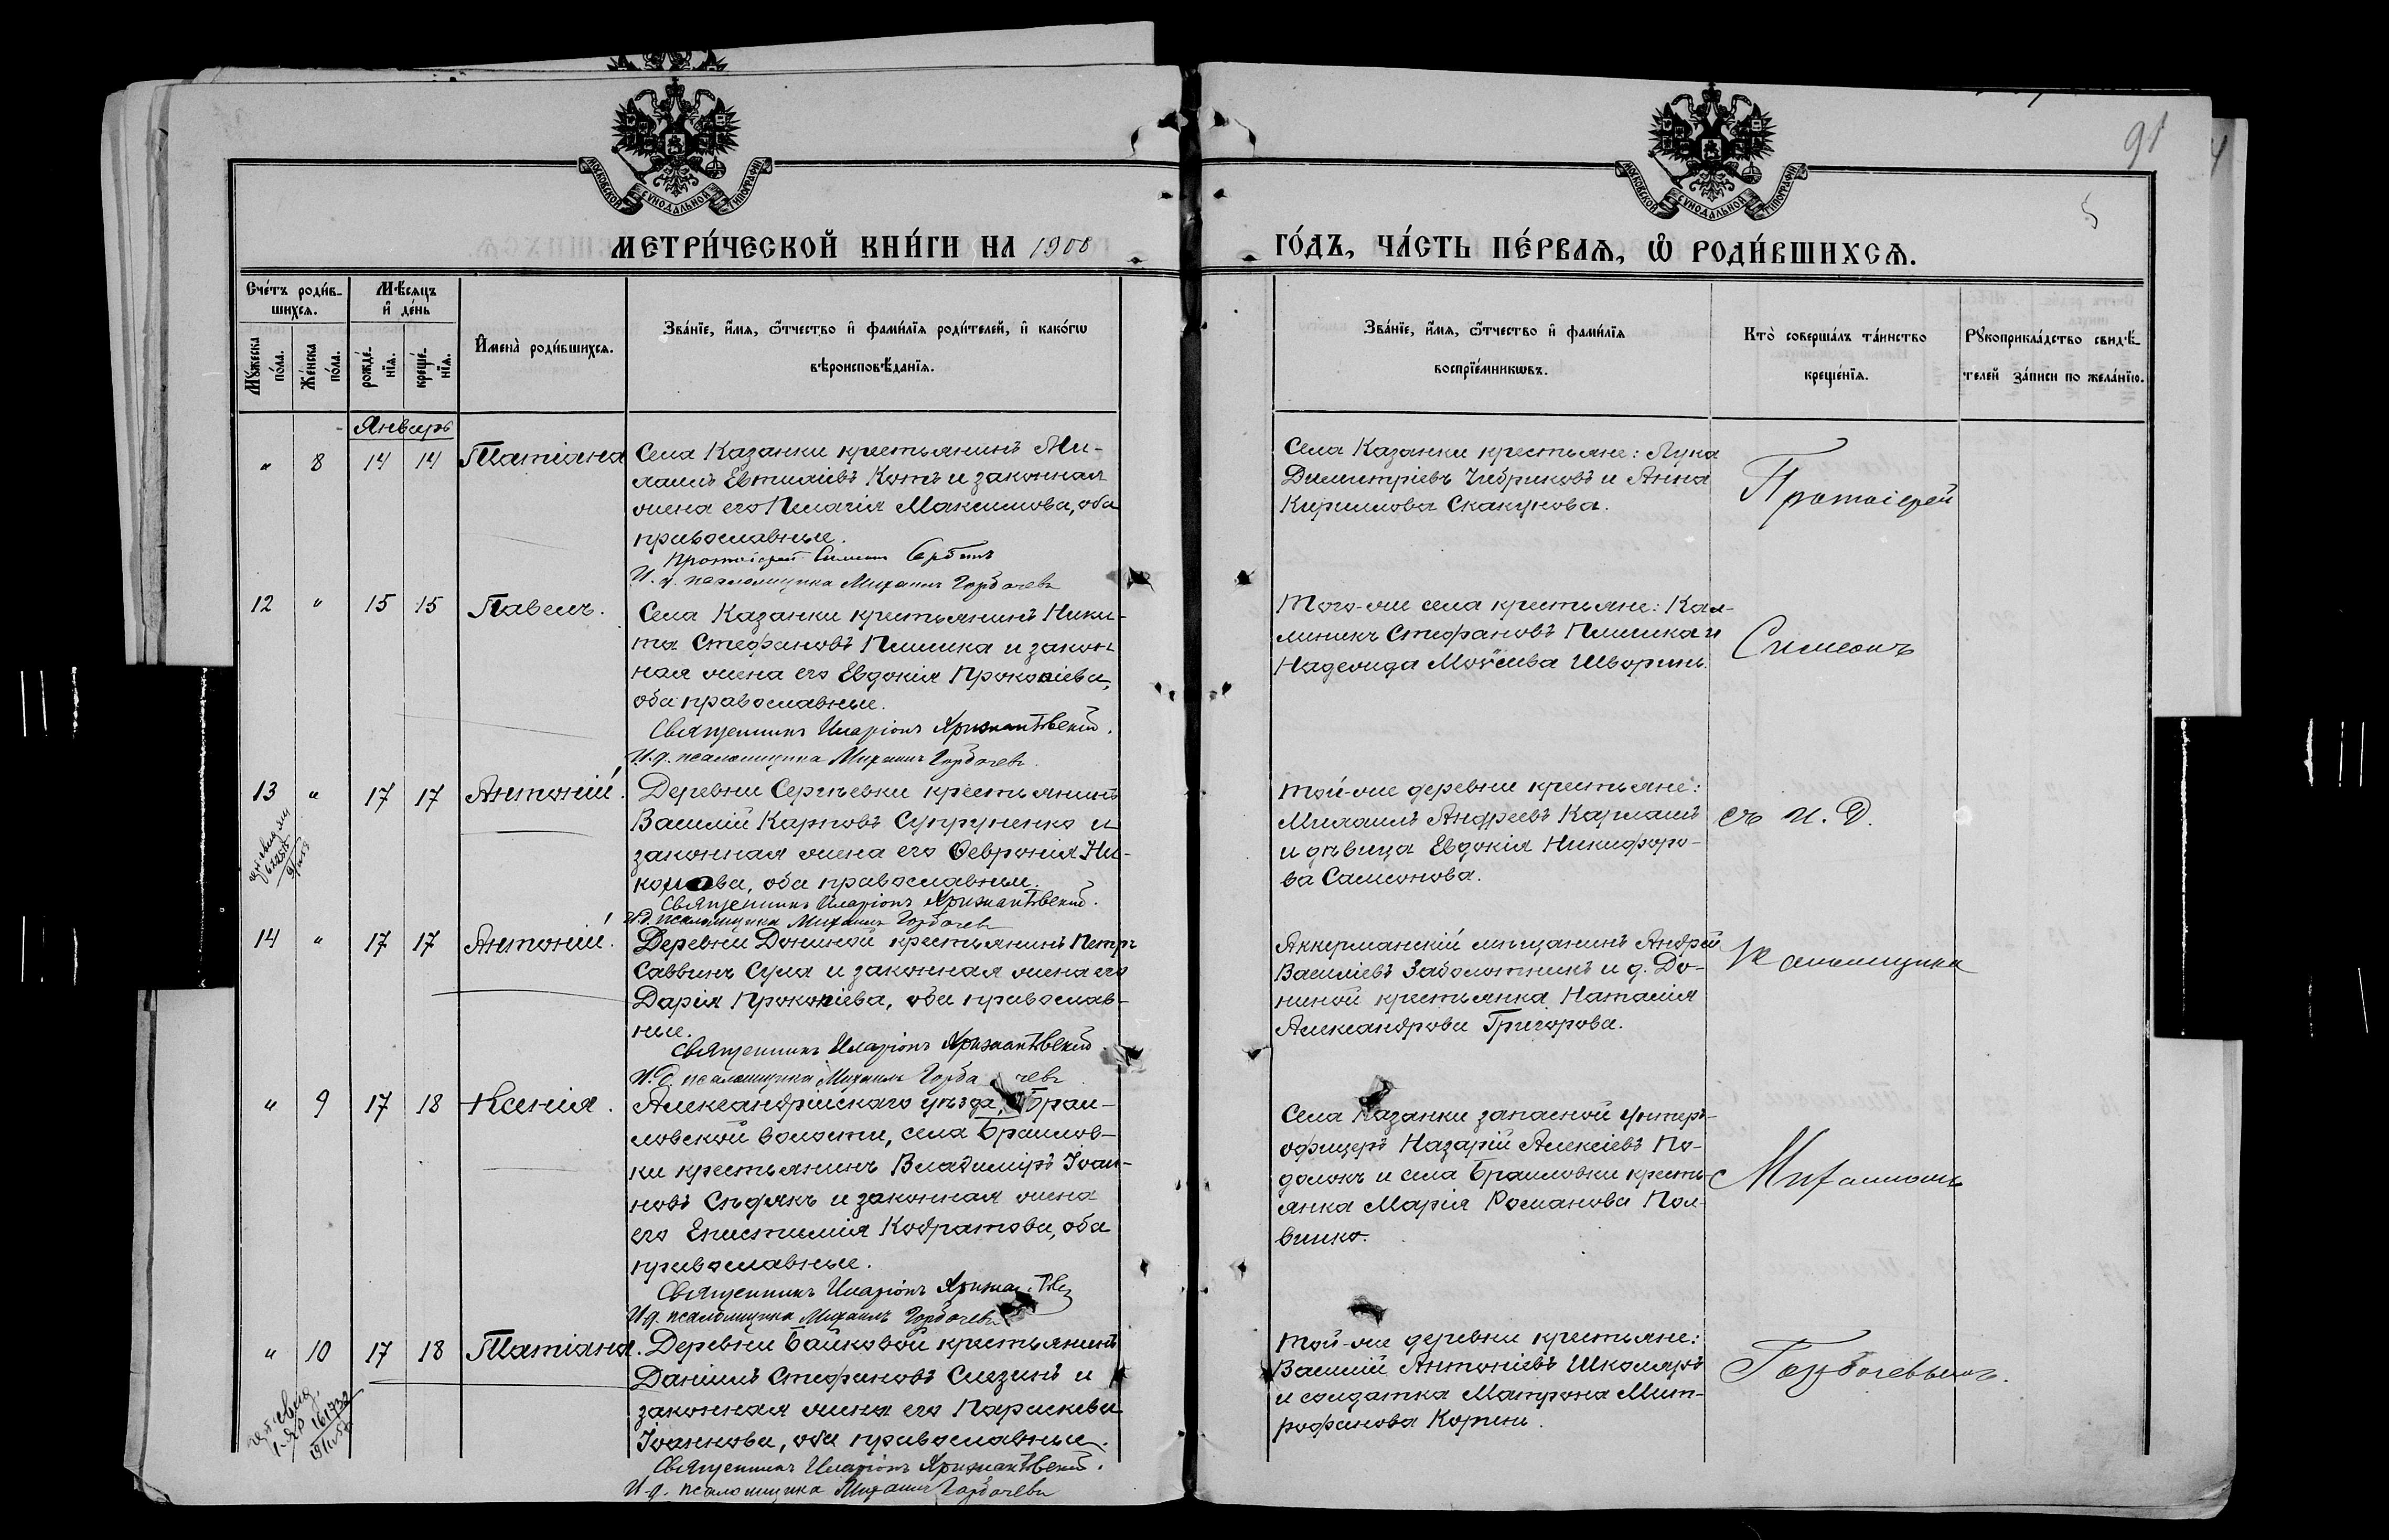 91
5
МОСКОВСКОЙ СѴНОДАЛЬНОЙ ТИПОГРАФІИ
МОСКОВСКОЙ СѴНОДАЛЬНОЙ ТИПОГРАФІИ
МЕТРИ́ЧЕСКОЙ КНИ́ГИ НА 1908
ГО́ДЪ, ЧА́СТЬ ПЕ́РВАѦ, Ѽ РОДИ́ВШИХСѦ.
Сче́тъ роди́в-
шихсѧ.
Мѣ́сѧцъ
и҆ де́нь
Мꙋ́жеска
по́ла.
Же́нска
по́ла.
рожде́-
нїѧ.
креще́-
нїѧ.
И҆мена̀ роди́вшихсѧ.
Зва́нїе, и҆́мѧ, ѻ҆́тчество и҆ фами́лїѧ роди́телей, и҆ како́гѡ
вѣроисповѣ́данїѧ.
Зва́нїе, и҆́мѧ, ѻ҆́тчество и҆ фами́лїѧ
воспрїе́мникѡвъ.
Кто̀ соверша́лъ та́инство
креще́нїѧ.
Рꙋкоприкла́дство свидѣ́-
телей за́писи по жела́нїю.
Январь
„ 8 14 14 Татіана
Села Казанки крестьянинъ Ми-
хаилъ Евтихіевъ Котъ и законная
жена его Пелагія Максимова, оба
православные.
Протоіерей Симеонъ
И. д. псаломщика Михаилъ Горбачевъ
Села Казанки крестьяне: Лука
Димитріевъ Чибриковъ и Анна
Кириллова Скакунова.
Протоіерей
12 „ 15 15 Павелъ.
Села Казанки крестьянинъ Ники-
та Стефановъ Пшишка и закон
ная жена его Евдокія Прокопіева,
оба православные.
Священникъ Иларіонъ
И. д. псаломщика Михаилъ Горбачевъ.
Того-же села крестьяне: Кал-
линикъ Стефановъ Пшишка и
Надежда Моѵсеева Шворинъ.
Симеонъ
13 „ 17 17 Антоній.
Деревни Сергѣевки крестьянинъ
Василій Карповъ Супруненко и
законная жена его Ѳевронія Ни-
конова, оба православные.
Священникъ Иларіонъ
И. д. псаломщика Михаилъ Горбачевъ
Той-же деревни крестьяне:
Михаилъ Андреевъ Кармашъ
и дѣвица Евдокія Никифоро-
ва Самсонова.
съ и. д.
14 „ 17 17 Антоній.
Деревни Дониной крестьянинъ Петръ
Саввинъ Сула и законная жена его
Дарія Прокопіева, оба православ-
ные.
Священникъ Иларіонъ
И. д. псаломщика Михаилъ Горбачевъ
Аккерманскій мѣщанинъ Андрей
Василіевъ Заболотникъ и д. До-
ниной крестьянка Наталія
Александрова Григорова.
псаломщика
„ 9 17 18 Ксенія.
Александрійскаго уѣзда, Браи-
ловской волости, села Браилов-
ки крестьянинъ Владиміръ Іоан-
новъ Сѣдякъ и законная жена
его Епистимія Кодратова, оба
православные.
Священникъ Иларіонъ
И. д. псаломщика Михаилъ Горбачевъ
Села Казанки запасной унтеръ-
офицеръ Назарій Алексіевъ По-
долокъ и села Браиловки кресть-
янка Марія Романова Пол-
винко.
Михаиломъ
„ 10 17 18 Татіана.
Деревни Байковой крестьянинъ
Даніилъ Стефановъ Слезинъ и
законная жена его Параскева
Іоаннова, оба православные.
Священникъ Иларіонъ
И. д. псаломщика Михаилъ Горбачевъ
Той-же деревни крестьяне:
Василій Антоніевъ Школяръ
и солдатка Матрона Мит-
рофанова Коринь.
Горбачевымъ.